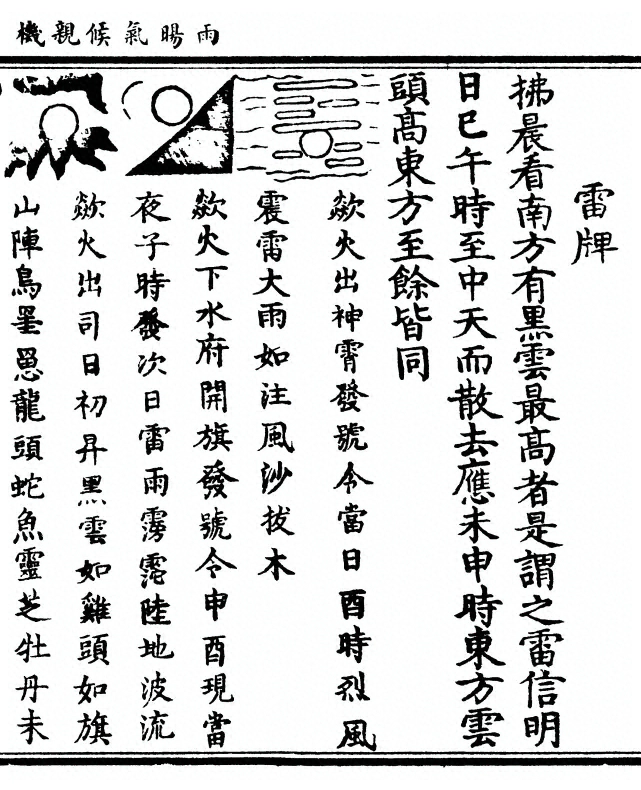 雨暘氣候親機
雷牌
拂晨看南方有黑雲最高者是謂之雷信明
日巳午時至中天而散去應未申時東方雲
頭高東方至餘皆同
歘火出神霄發號令當日酉時烈風
震雷大雨如注風沙拔木
歘火下水府開旗發號令申酉現當
夜子時發次日雷雨霶霈陸地波流
歘火出司日初昇黑雲如雞頭如旗
山陣鳥墨罳龍頭蛇魚靈芝牡丹未